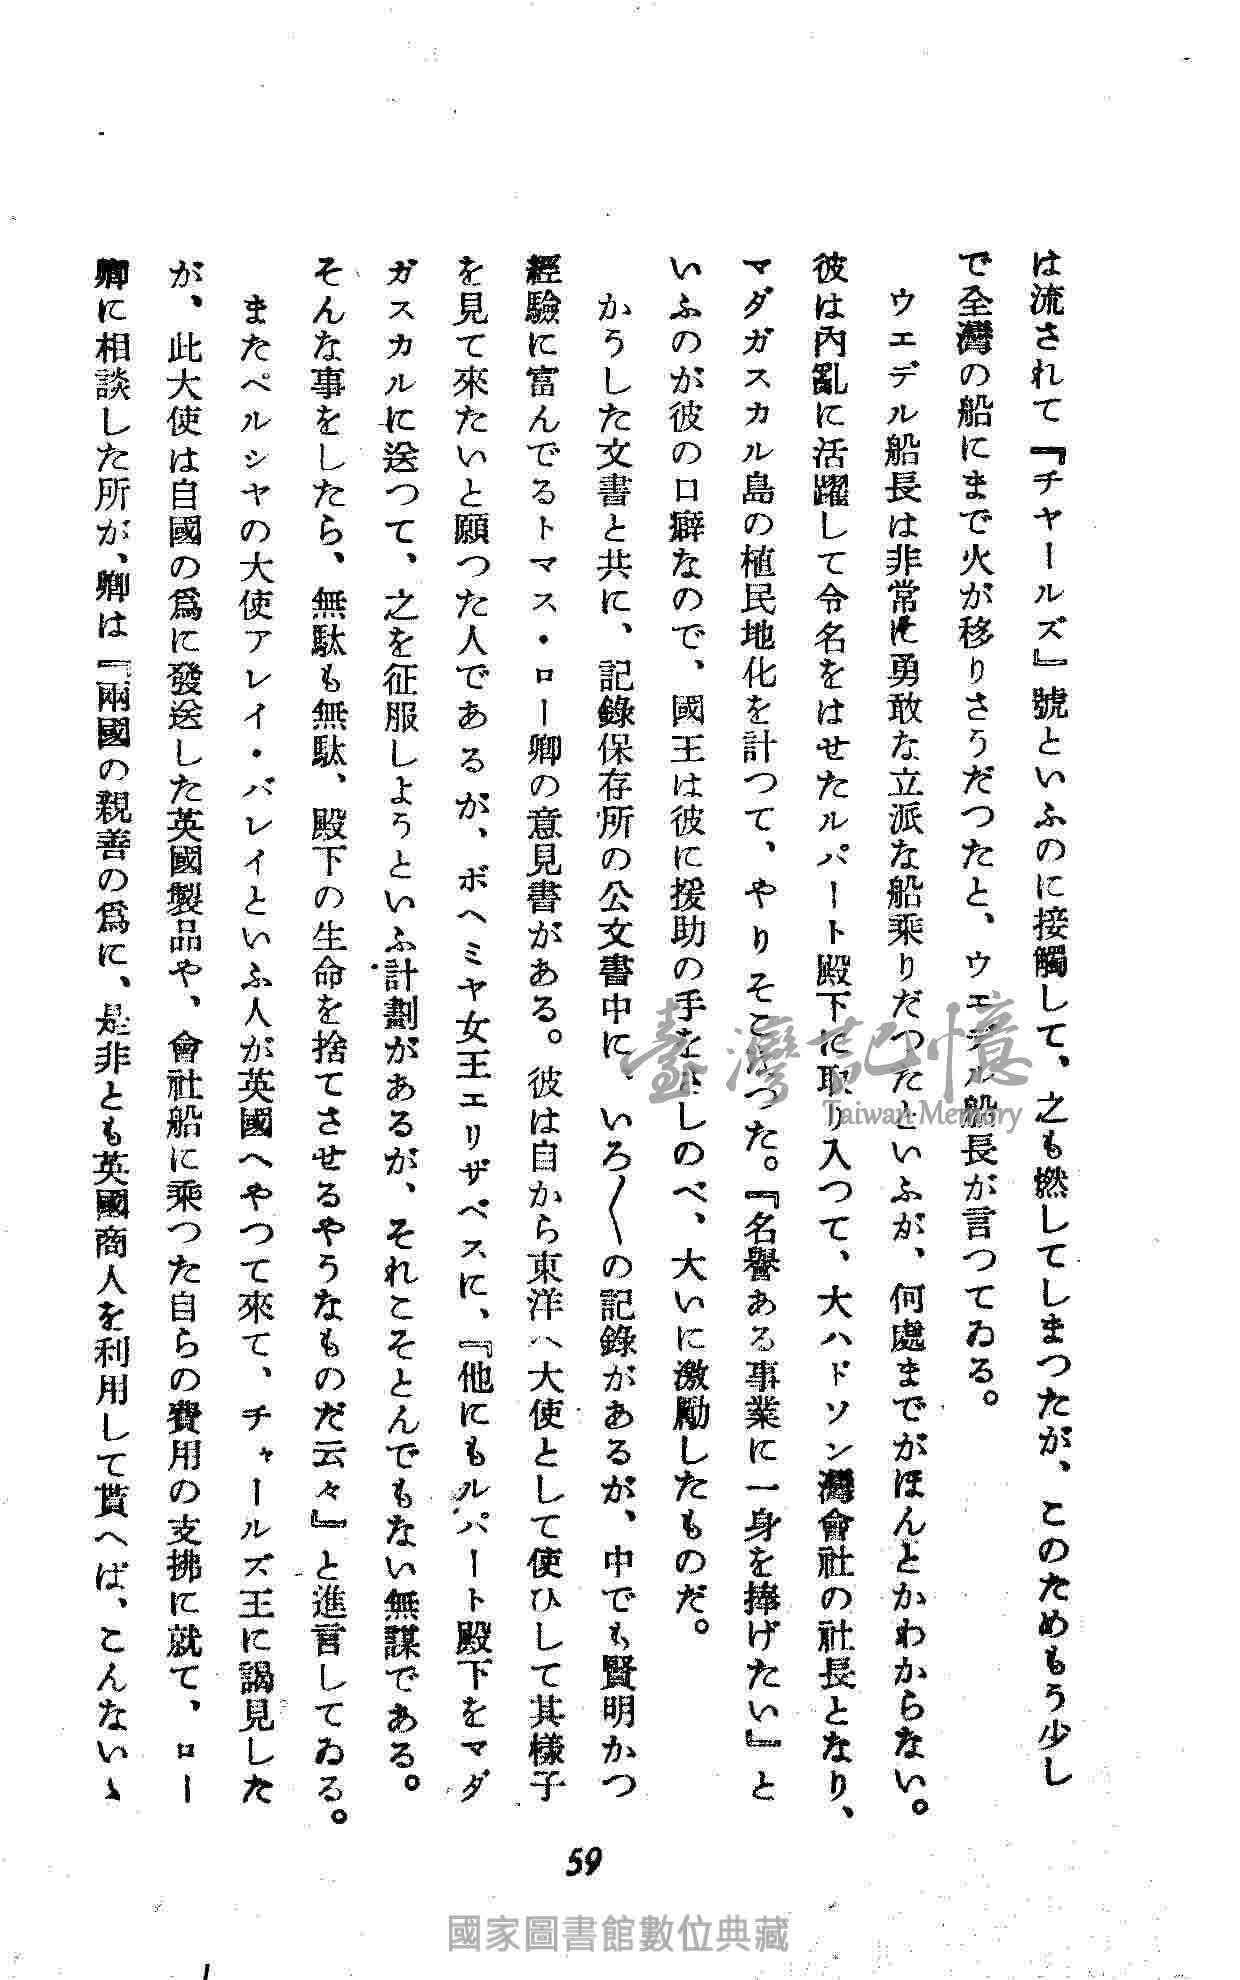 は流されて『チヤールズ』號といふのに接觸して、之も燃してしまつたが、このためもう少し
で全灣の船にまで火が移りさうだつたと、ウエデル船長が言つてゐる。
ウエデル船長は非常に勇敢な立派な船乘りだつたといふが、何處までがほんとかわからない。
彼は內亂に活躍して令名をはせたルパート殿下に取り入つて、大ハドソン灣會社の社長となり、
マダガスカル島の植民地化を計つて、やりそこなつた。『名譽ある事業に一身を捧げたい』と
いふのが彼の口癖なので、國王は彼に援助の手をさしのべ、大いに激勵したものだ。
かうした文書と共に、記錄保存所の公文書中に、いろ〱の記錄があるが、中でも賢明かつ
經驗に富んでるトマス・ロー卿の意見書がある。彼は自から東洋へ大使として使ひして其樣子
を見て來たいと願つた人であるが、ボヘミヤ女王エリザベスに、『他にもルパート殿下をマダ
ガスカルに送つて、之を征服しようといふ計劃があるが、それこそとんでもない無謀である。
そんな事をしたら、無駄も無駄、殿下の生命を捨てさせるやうなものだ云々』と進言してゐる。
またペルシヤの大使アレイ・バレイといふ人が英國へやつて來て、チャールズ王に謁見した
が、此大使は自國の爲に發送した英國製品や、會社船に乘つた自らの費用の支拂に就て、ロー
卿に相談した所が、卿は『兩國の親善の爲に、是非とも英國商人を利用して貰へば、こんないゝ
59
臺灣記憶
Taiwan Memory
國家圖書館數位典藏